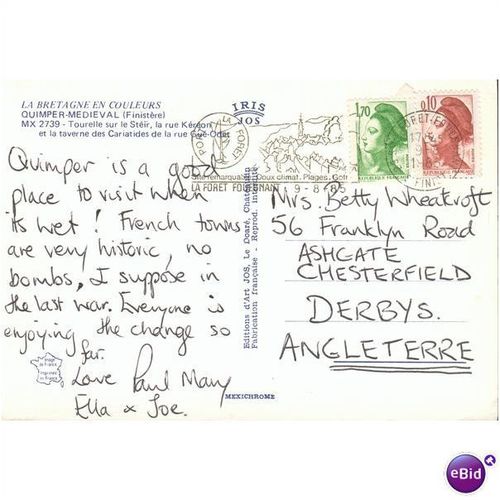 LA BRETAGNE EN COULEURS
QUIMPER-MEDIEVAL (Finistère)
MX 2739 - Tourelle sur le Stéïr, la rue Kéréon
et la taverne des Cariatides de la rue Gué-Odet
IRIS
JOS
LA FORET
Site remarquable. Doux climat. Plages. Golf
LA FORET FOUESNANT
9-8-85
1,70
0,10
Quimper is a good
place to visit when
its wet! French towns
are very historic, no
bombs, I suppose in
the last war. Everyone is
enjoying the change so
far.
Love Paul Mary
Ella & Joe.
Editions d'Art JOS, Le Doaré, Chateaulin
Fabrication française - Reprod. interdite
MEXICHROME
Mrs. Betty Wheatcroft
56 Franklyn Road
ASHGATE
CHESTERFIELD
DERBYS.
ANGLETERRE
eBid